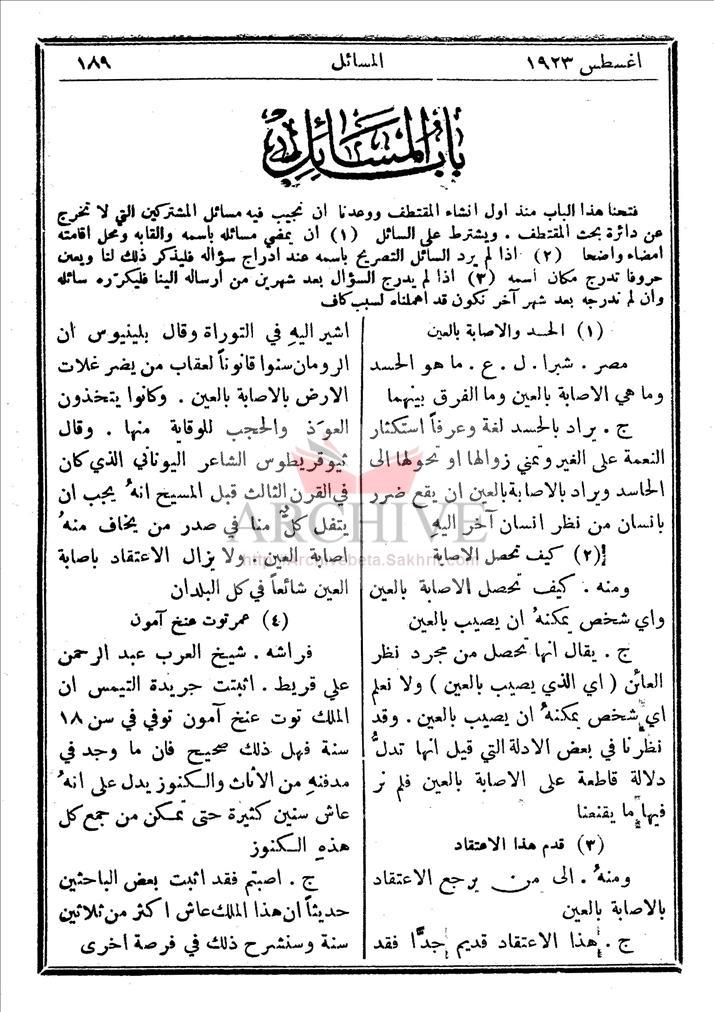 اغسطس ١٩٢٣
المسائل
١٨٩
باب المسائل
فتحنا هذا الباب منذ اول انشاء المقتطف ووعدنا ان نجيب فيه مسائل المشتركين التي لا تخرج
عن دائرة بحث المقتطف . ويشترط على السائل (١) ان يمضي مسائله باسمه والقابه ومحل اقامته
امضاء واضحا (٢) اذا لم يرد السائل التصريح باسمه عند ادراج سؤاله فليذكر ذلك لنا ويعين
حروفا تدرج مكان اسمه (٣) اذا لم يدرج السؤال بعد شهرين من ارساله الينا فليكرّره سائله
وان لم ندرجه بعد شهر آخر نكون قد اهملناه لسبب كاف
(١) الحسد والاصابة بالعين
مصر . شبرا . ل . ع . ما هو الحسد
وما هي الاصابة بالعين وما الفرق بينهما
ج . يراد بالحسد لغة وعرفاً استكثار
النعمة على الغير وتمني زوالها او تحولها الى
الحاسد ويراد بالاصابة بالعين ان يقع ضرر
بانسان من نظر انسان آخر اليهِ
(٢) كيف تحصل الاصابة
ومنه . كيف تحصل الاصابة بالعين
واي شخص يمكنهُ ان يصيب بالعين
ج . يقال انها تحصل من مجرد نظر
العائن ( اي الذي يصيب بالعين ) ولا نعلم
اي شخص يمكنهُ ان يصيب بالعين . وقد
نظرنا في بعض الادلة التي قيل انها تدلُّ
دلالة قاطعة على الاصابة بالعين فلم نر
فيها ما يقنعنا
(٣) قدم هذا الاعتقاد
ومنهُ . الى من يرجع الاعتقاد
بالاصابة بالعين
ج . هذا الاعتقاد قديم جدًّا فقد
اشير اليهِ في التوراة وقال بلينيوس ان
الرومان سنوا قانوناً لعقاب من يضر غلات
الارض بالاصابة بالعين . وكانوا يتخذون
العوَذ والحجب للوقاية منها . وقال
ثيوقريطوس الشاعر اليوناني الذي كان
في القرن الثالث قبل المسيح انهُ يجب ان
يتفل كلٌّ منا في صدر من يخاف منهُ
اصابة العين . ولا يزال الاعتقاد باصابة
العين شائعاً في كل البلدان
(٤) عمر توت عنخ آمون
فراشه . شيخ العرب عبد الرحمن
علي قريط . اثبتت جريدة التيمس ان
الملك توت عنخ آمون توفي في سن ١٨
سنة فهل ذلك صحيح فان ما وجد في
مدفنهِ من الأثاث والكنوز يدل على انهُ
عاش سنين كثيرة حتى تمكن من جمع كل
هذهِ الكنوز
ج . اصبتم فقد اثبت بعض الباحثين
حديثاً ان هذا الملك عاش اكثر من ثلاثين
سنة وسنشرح ذلك في فرصة اخرى
ARCHIVE
http://Archivebeta.Sakhrit.com